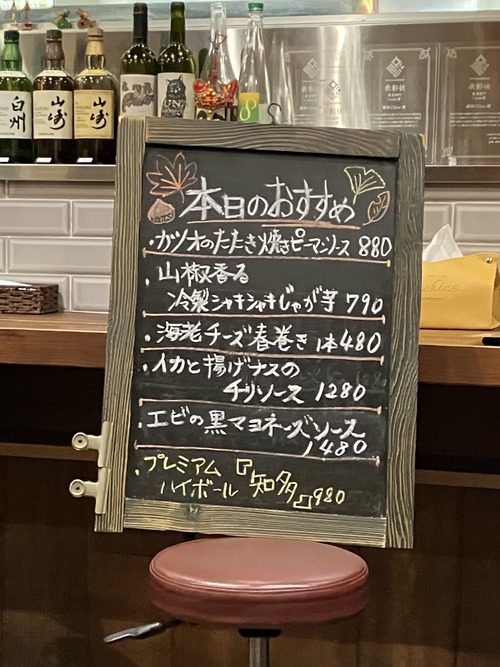 白州
山崎
山崎
本日のおすすめ
・カツオのたたき焼きピーマンソース 880
・山椒香る
冷製シャキシャキじゃが芋 790
・海老チーズ春巻き 1本480
・イカと揚げナスの
チリソース 1280
・エビの黒マヨネーズソース
1480
・プレミアム
ハイボール『知多』980